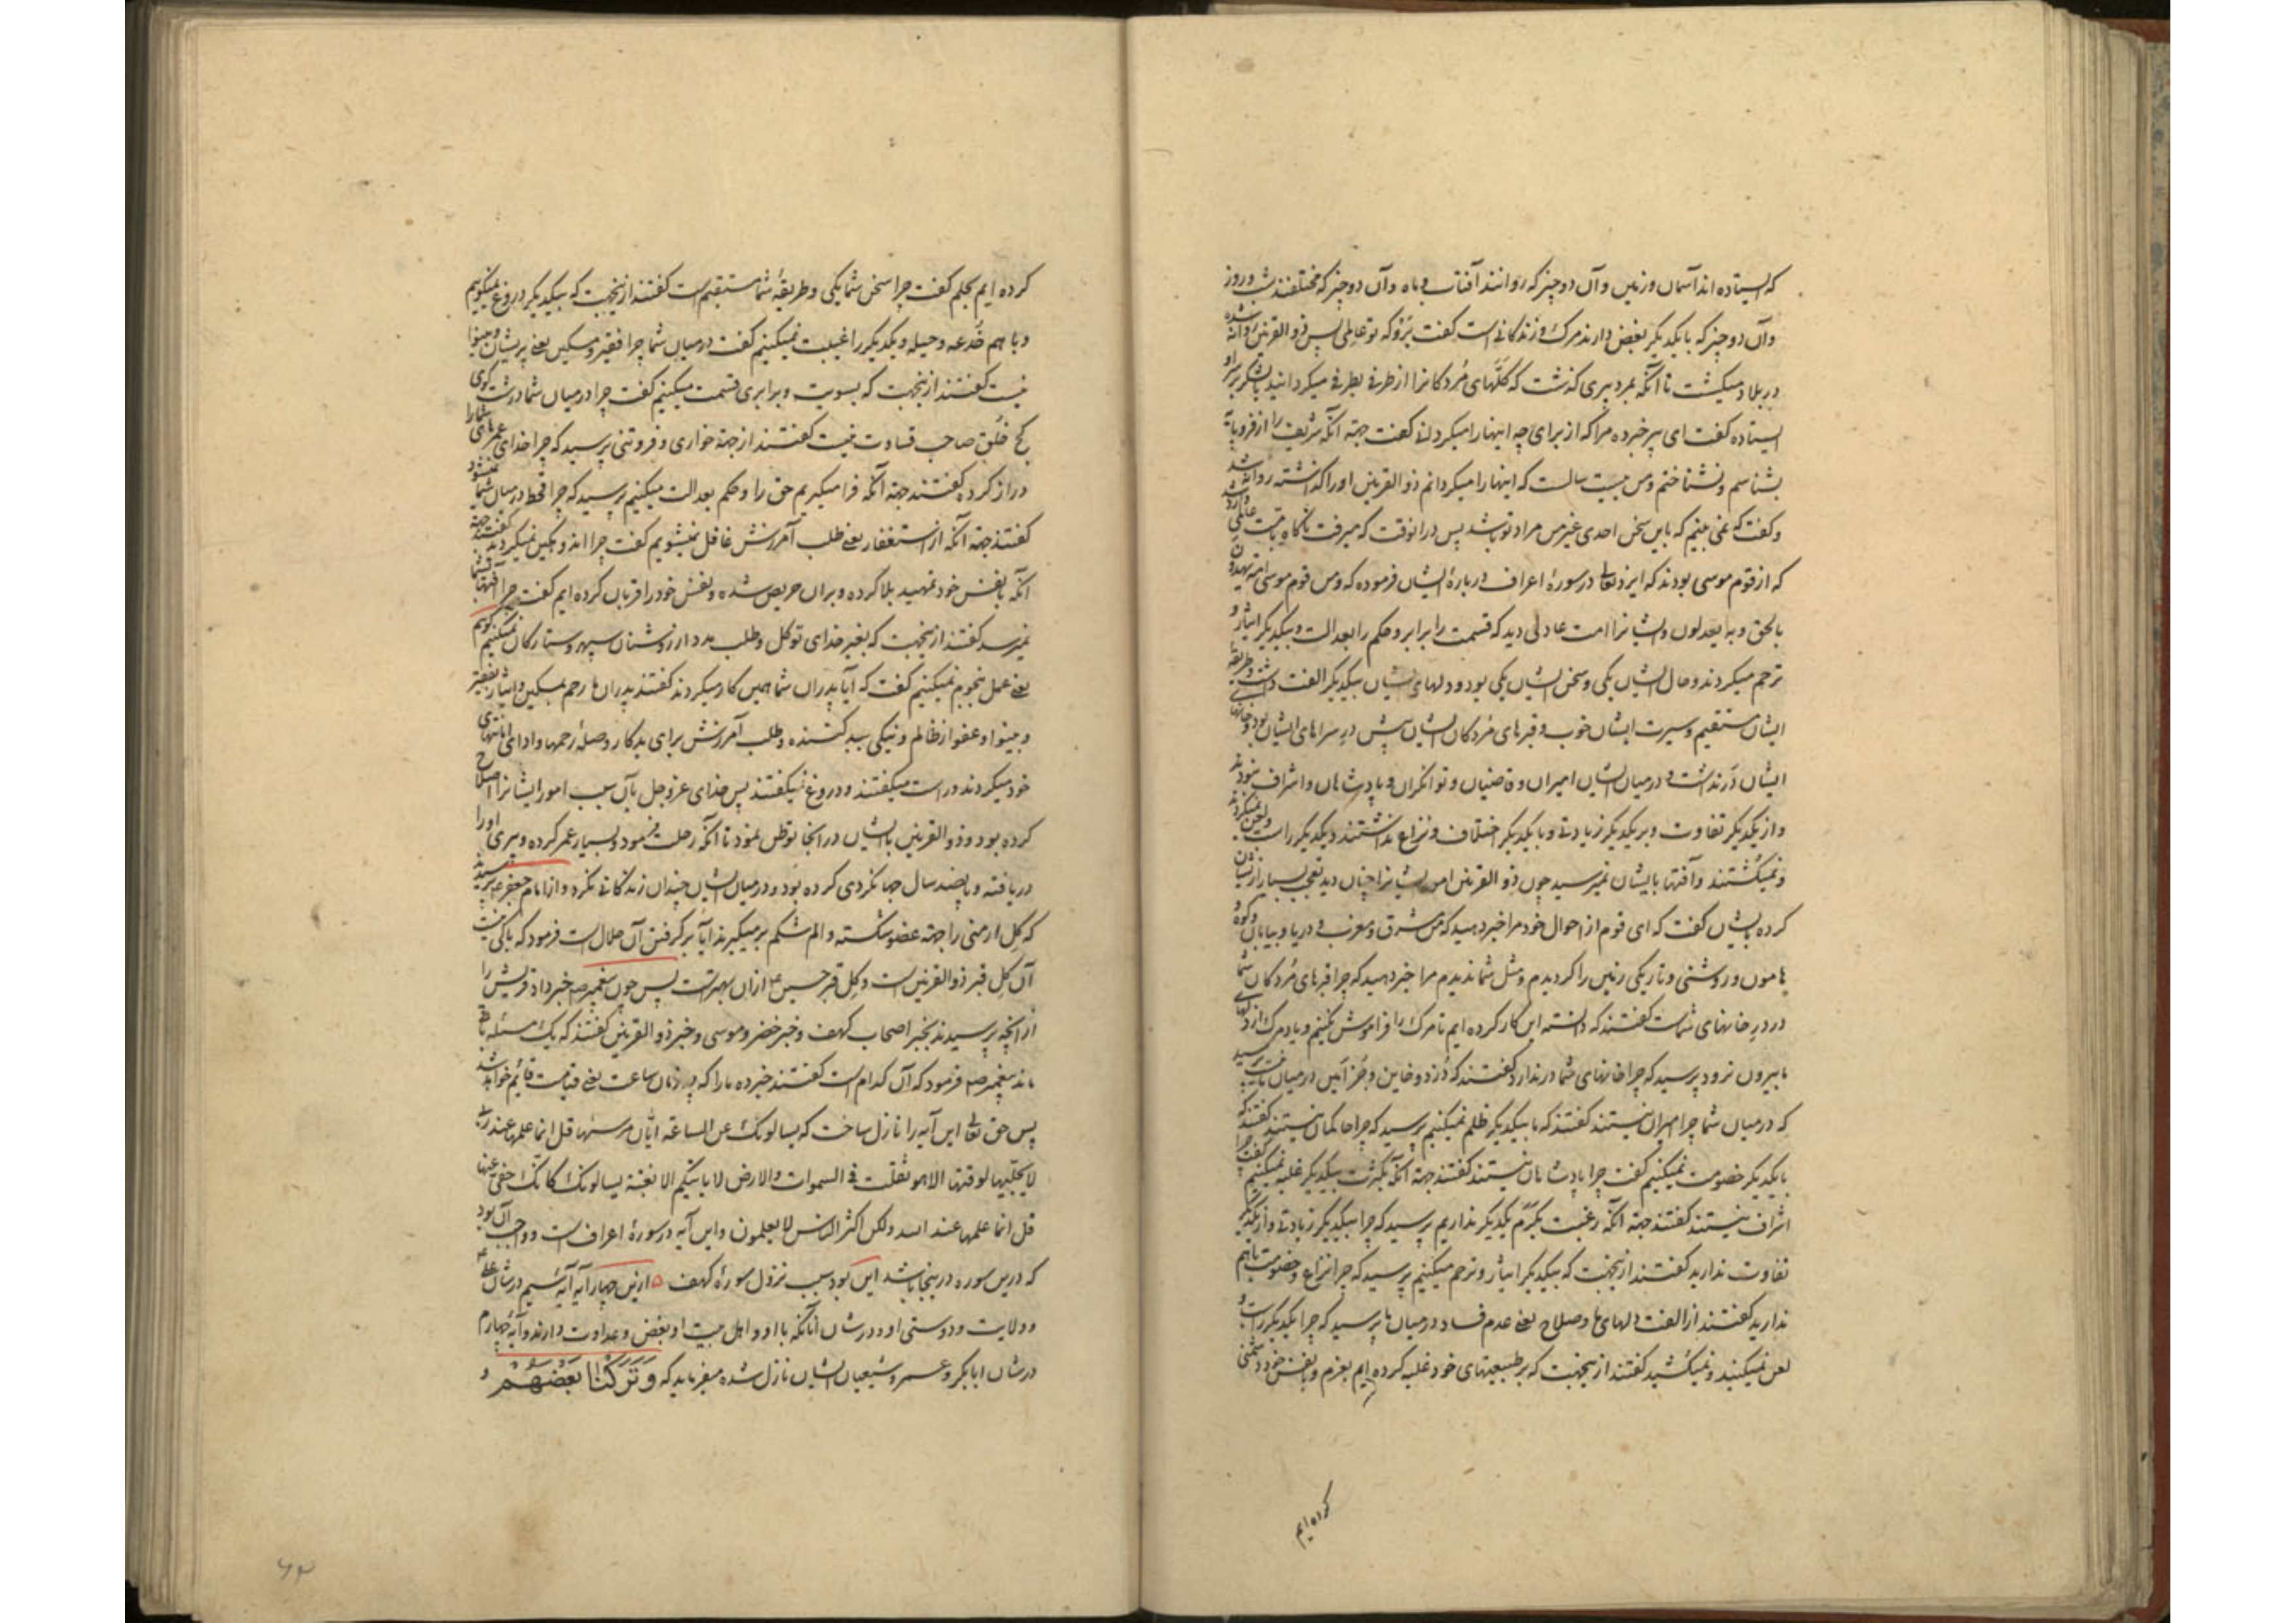 که ایستاده‌اند آسمان و زمین و آن دو چیز که روانند آفتاب و ماه و آن دو چیز که مختلفند شب و روز
و آن دو چیز که با یکدیگر بغض دارند مرک و زندکانی است کفت برو که تو عالمی پس ذو القرنین روانه شده
در بلاد میکشت تا آنکه بمرد پیری کذشت که کلّهای مردکانرا از طرفی بطرفی میکردانید با لشکر بر سر او
ایستاده کفت ای پیر خبر ده مرا که از برای چه اینها را میکردانی کفت جهة آنکه شریف را از فرومایه
بشناسم و نشناختم و من بیست سالست که اینها را میکردانم ذو القرنین او را کذاشته روانه شد
و کفت که نمی بینم که باین سخن احدی غیر من مراد تو باشد پس در انوقت که میرفت ناکاه بامت عالمی وارد شد
که از قوم موسی بودند که ایزد تعالی در سورهٔ اعراف دربارهٔ ایشان فرموده که ومن قوم موسی امة یهدون
بالحق وبه یعدلون و ایشانرا امت عادلی دید که قسمت را برابر و حکم را بعدالت و بیکدیکر ایثار و
ترحم میکردند و حال ایشان یکی و سخن ایشان یکی بود و دلهای ایشان بیکدیکر الفت داشت و طریقهٔ
ایشان مستقیم و سیرت ایشان خوب و قبرهای مردکان ایشان پیش در سراهای ایشان بود و خانهای
ایشان در نداشت و درمیان ایشان امیران و قاضیان و توانکران و پادشاهان و اشراف نبودند
و از یکدیکر تفاوت و بر یکدیکر زیادتی و با یکدیکر اختلاف و نزاع نداشتند و یکدیکر راست و لعن نمیکردند
و نمیکشتند و آفتها بایشان نمیرسید چون ذو القرنین امور ایشانرا چنان دید تعجب بسیار از ایشان
کرده بایشان کفت که ای قوم از احوال خود مرا خبر دهید که من مشرق و مغرب و دریا و بیابان و کوه و
هامون و روشنی و تاریکی زمین را کردیدم و مثل شما ندیدم مرا خبر دهید که چرا قبرهای مردکان شما
در در خانهای شماست کفتند که دانسته این کار کرده ایم تا مرک را فراموش نکنیم و یاد مرک از دلهای
ما بیرون نرود پرسید که چرا خانهای شما در ندارد کفتند که دزد و خاین و جز امین درمیان ما نیست پرسید
که درمیان شما چرا امیران نیستند کفتند که ما بیکدیکر ظلم نمیکنیم پرسید که چرا حاکمان نیستند کفتند که
با یکدیکر خصومت نمیکنیم کفت چرا پادشاهان نیستند کفتند جهة آنکه بکثرت بیکدیکر غلبه نمیکنیم کفت چرا
اشراف نیستند کفتند جهة آنکه رغبت بکرم یکدیکر نداریم پرسید که چرا بیکدیکر زیادتی و از یکدیکر
تفاوت ندارید کفتند از اینجهت که بیکدیکر ایثار و ترحم میکنیم پرسید که چرا نزاع و خصومت باهم
ندارید کفتند از الفت دلهای ما و صلاح یعنی عدم فساد درمیان ما پرسید که چرا یکدیکر راست و
لعن نمیکنید و نمیکشید کفتند از اینجهت که بر طبیعتهای خود غلبه کرده ایم بعزم و بنفس خود دشمنی
کرده ایم
کرده ایم بحلم کفت چرا سخن شما یکی و طریقهٔ شما مستقیم است کفتند از اینجهت که بیکدیکر دروغ نمیکوییم
و با هم خدعه و حیله و یکدیکر را غیبت نمیکنیم کفت درمیان شما چرا فقیر و مسکین یعنی پریشان و بینوا
نیست کفتند از اینجهت که بسویت و برابری قسمت میکنیم کفت چرا درمیان شما درشت کوی
کج خلق صاحب قساوت نیست کفتند از جهة خواری و فروتنی پرسید که چرا خدای عمرهای شما را
دراز کرده کفتند جهة آنکه فرا میکیریم حق را و حکم بعدالت میکنیم پرسید که چرا قحط درمیان شما نمیشود
کفتند جهة آنکه از استغفار یعنی طلب آمرزش غافل نمیشویم کفت چرا اندوهکین نمیکردید کفتند جهة
آنکه بنفس خود تمهید بلا کرده و بران حریص شده و نفس خود را قربان کرده ایم کفت چرا آفتها بشما
نمیرسد کفتند از اینجهت که بغیر خدای توکل و طلب مدد از روشنان سپهر و ستارکان نمیکنیم
یعنی عمل بنجوم نمیکنیم کفت که آیا پدران شما همین کار میکردند کفتند پدران ما رحم بمسکین و ایثار بفقیر
و بینوا و عفو از ظالم و نیکی ببد کننده و طلب آمرزش برای بدکار و صلهٔ رحمها و ادای امانتهای
خود میکردند و راست میکفتند و دروغ نمیکفتند پس خدای عز و جل بآن سبب امور ایشانرا اصلاح
کرده بود و ذو القرنین با ایشان در انجا توطن نمود تا آنکه رحلت فرمود و بسیار عمر کرده و پیری او را
دریافته و پانصد سال جهانکردی کرده بود و درمیان ایشان چندان زندکانی نکرد و از امام جعفر ع پرسیدند
که کل ارمنی را جهة عضو شکسته و الم شکم برمیکیرند ایا برکرفتن آن حلال است فرمود که باکی نیست
آن کل قبر ذو القرنین است و کل قبر حسین ع از ان بهترست پس چون پیغمبر ص خبر داد قریش را
از انچه پرسیدند بخبر اصحاب کهف و خبر خضر و موسی و خبر ذو القرنین کفتند که یک مسئله باقی
ماند پیغمبر ص فرمود که آن کدام است کفتند خبر ده ما را که چه زمان ساعت یعنی قیامت قائم خواهد شد
پس حق تعالی این آیه را نازل ساخت که یسالونک عن الساعة ایان مرسیها قل انما علمها عند ربی
لا یجلّیها لوقتها الا هو ثقلت فی السموات والارض لا یاتیکم الا بغتة یسالونک کانک حفی عنها
قل انما علمها عند الله ولکن اکثر الناس لا یعلمون و این آیه در سورهٔ اعراف است و واجب آن بود
که درین سوره در اینجا باشد این بود سبب نزول سورهٔ کهف ه ازین چهار آیه آیهٔ سیم در شان علی ع
و ولایت و دوستی او و در شان آنانکه با او و اهل بیت او بغض و عداوت دارند و آیهٔ چهارم
در شان ابابکر و عمر و شیعیان ایشان نازل شده میفرماید که وَتَرَكْنَا بَعْضَهُمْ و
۶۲